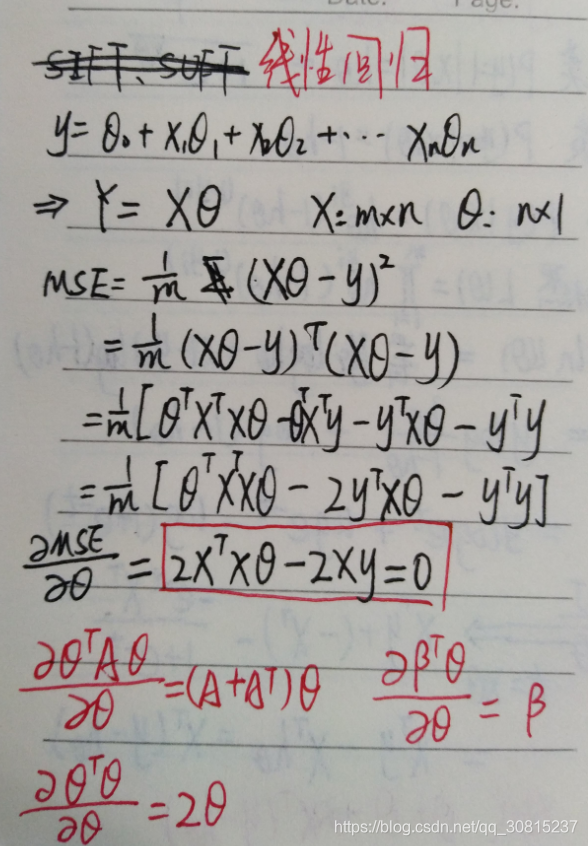 Date: Page:
SIFT、SUFT 线性回归
y = θ₀ + x₁θ₁ + x₂θ₂ + ··· xₙθₙ
⇒ Y = Xθ X: m×n θ: n×1
MSE = 1/m (Xθ - y)²
= 1/m (Xθ - y)ᵀ(Xθ - y)
= 1/m [θᵀXᵀXθ - θᵀXᵀy - yᵀXθ - yᵀy
= 1/m [θᵀXᵀXθ - 2yᵀXθ - yᵀy]
∂MSE/∂θ = 2XᵀXθ - 2Xy = 0
∂θᵀAθ/∂θ = (A+Aᵀ)θ ∂βᵀθ/∂θ = β
∂θᵀθ/∂θ = 2θ
https://blog.csdn.net/qq_30815237